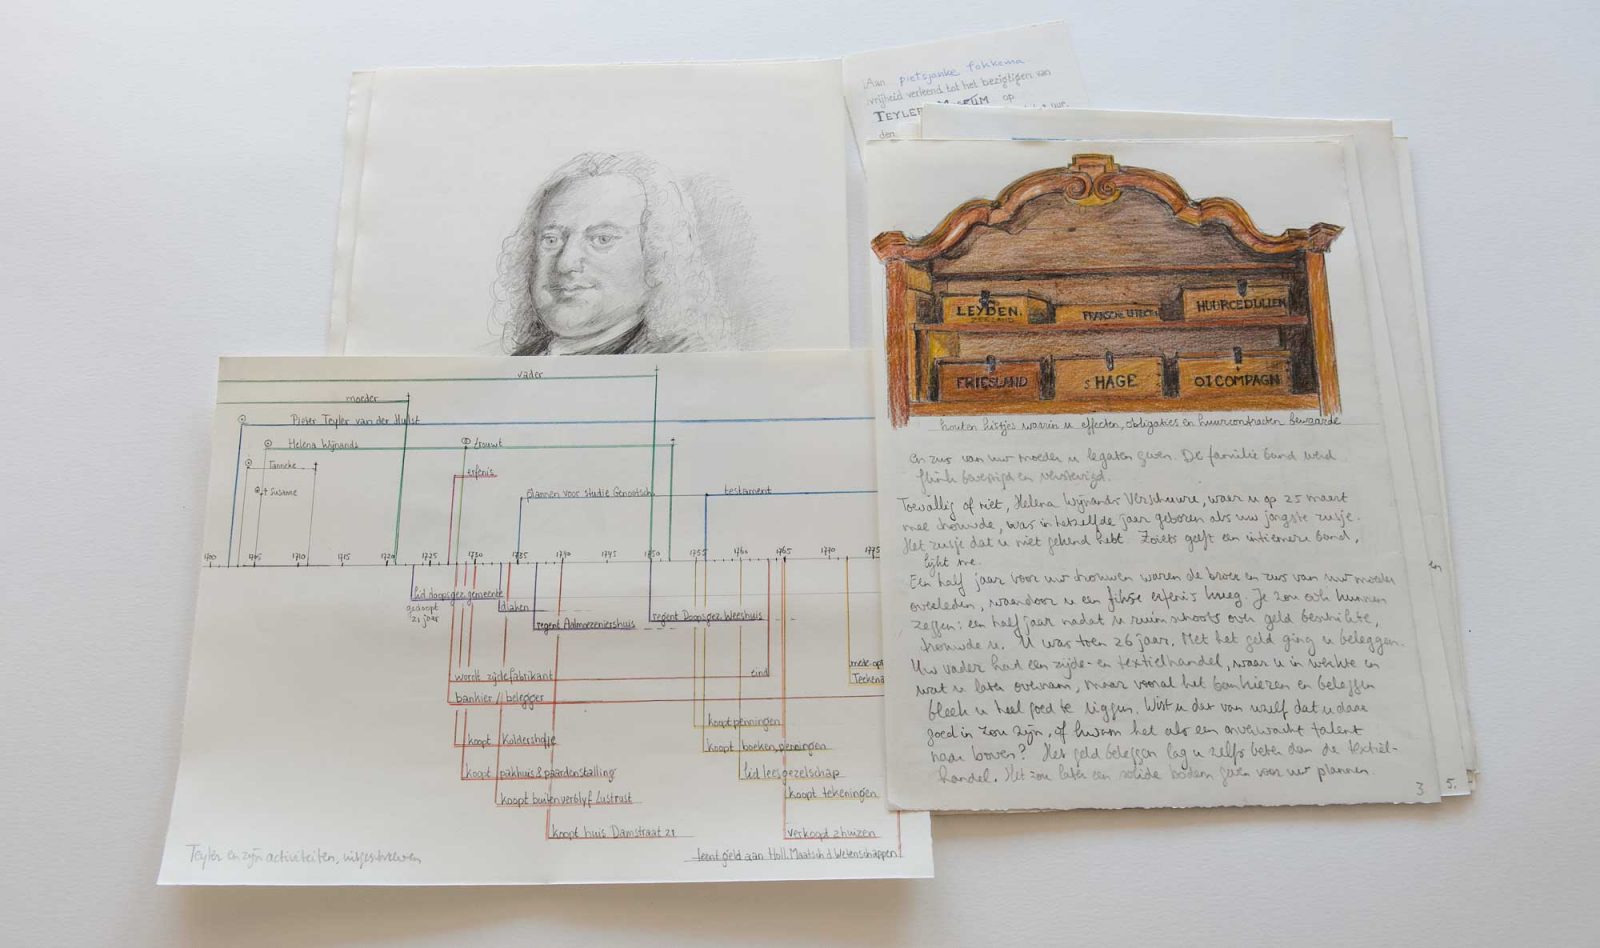 Aan pietsjanke fokkema
vrijheid verleend tot het bezigtigen van
TEYLERS MUSEUM op
den
vader
moeder
Pieter Teyler van der Hulst
Helena Wijnands
trouwt
Tanneke
erfenis
† Susanne
plannen voor studie Genootsch.
testament
1700 1705 1710 1715 1720 1725 1730 1735 1740 1745 1750 1755 1760 1765 1770 1775
lid doopsgez. gemeente
gedoopt
21 jaar
diaken
regent Aalmoezeniershuis
regent Doopsgez. Weeshuis
mede-op
Teekena
wordt zijdefabrikant
eind
bankier / belegger
koopt penningen
koopt Koldershofje
koopt boeken, penningen
koopt pakhuis & paardenstalling
lid leesgezelschap
koopt buitenverblijf Lustrust
koopt tekeningen
koopt huis Damstraat 21
verkoopt 2 huizen
leent geld aan Holl. Maatsch d Wetenschappen
Teyler en zijn activiteiten, uitgeschreven
LEYDEN.
ZEELAND
FRANSCHE EFFECTEN
HUURCEDULLEN
FRIESLAND
s HAGE
OI COMPAGN
houten kistjes waarin u effecten, obligaties en huurcontracten bewaarde
en zus van uw moeder u legaten gaven. De familie band werd
flink bevestigd en verstevigd.
Toevallig of niet, Helena Wijnands Verschuure, waar u op 25 maart
mee trouwde, was in hetzelfde jaar geboren als uw jongste zusje.
Het zusje dat u niet gekend hebt. Zoiets geeft een intiemere band,
lijkt me.
Een half jaar voor uw trouwen waren de broer en zus van uw moeder
overleden, waardoor u een fikse erfenis kreeg. Je zou ook kunnen
zeggen: een half jaar nadat u ruimschoots over geld beschikte,
trouwde u. U was toen 26 jaar. Met het geld ging u beleggen.
Uw vader had een zijde- en textielhandel, waar u in werkte en
wat u later overnam, maar vooral het bankieren en beleggen
bleek u heel goed te liggen. Wist u dat van uzelf dat u daar
goed in zou zijn, of kwam het als een onverwacht talent
naar boven? Het geld beleggen lag u zelfs beter dan de textiel-
handel. Het zou later een solide bodem geven voor uw plannen.
3
en
5.